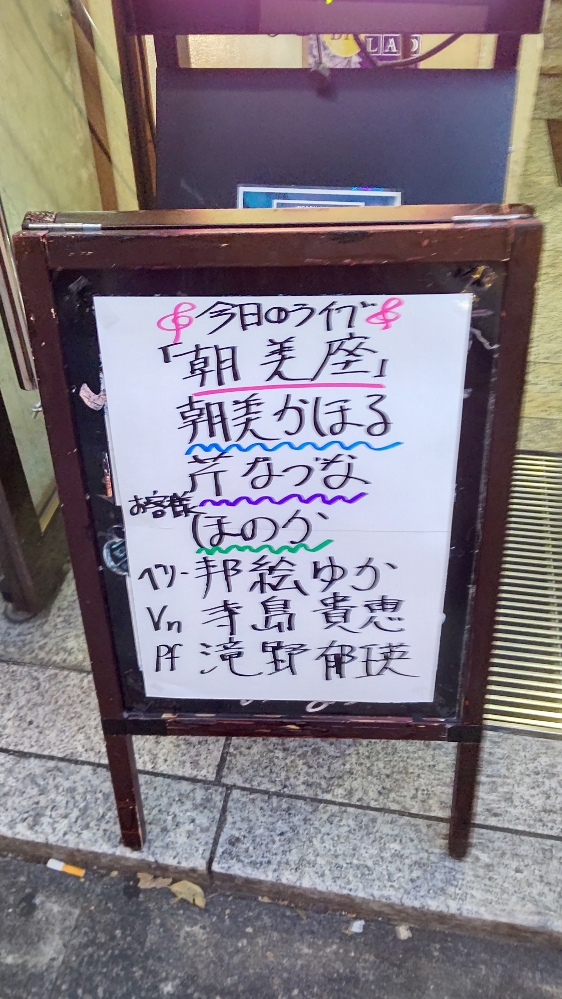 LAD
今日のライブ
「朝美座」
朝美かほる
芹なづな
お客様
ほのか
ベツー邦絵ゆか
Vn 寺島貴恵
Pf 滝野郁瑛